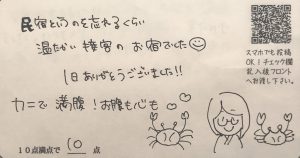 民宿というのを忘れるくらい
温かい接客のお宿でした
1日ありがとうございました!!
カニで満腹!お腹も心も
10点満点で 10 点
スマホでも投稿
OK!チェック欄
記入後フロント
へお渡し下さい。